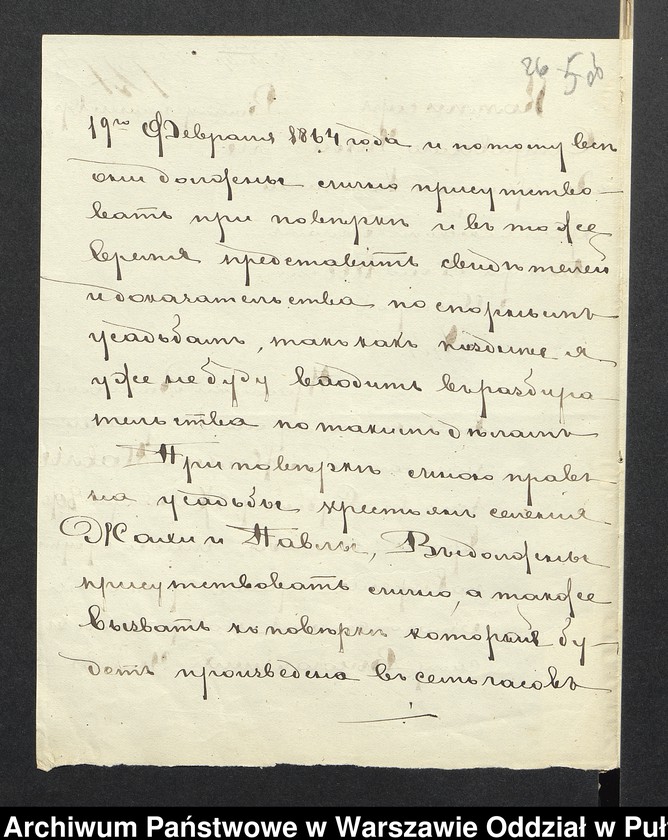 26 58
19го Февраля 1864 года и потому всѣ
они должны лично присутство-
вать при повѣркѣ и въ тоже
время представить свидѣтелей
и доказательства по спорнымъ
усадьбамъ, такъ какъ позднѣе я
уже не буду входить въ разбира-
тельства по такимъ дѣламъ
При повѣркѣ моею правъ
на усадьбы крестьянъ селенія
Жалки и Павлы, Вы должны
присутствовать лично, а также
вызвать къ повѣркѣ которая бу-
детъ произведена въ семь часовъ
Archiwum Państwowe w Warszawie Oddział w Puł